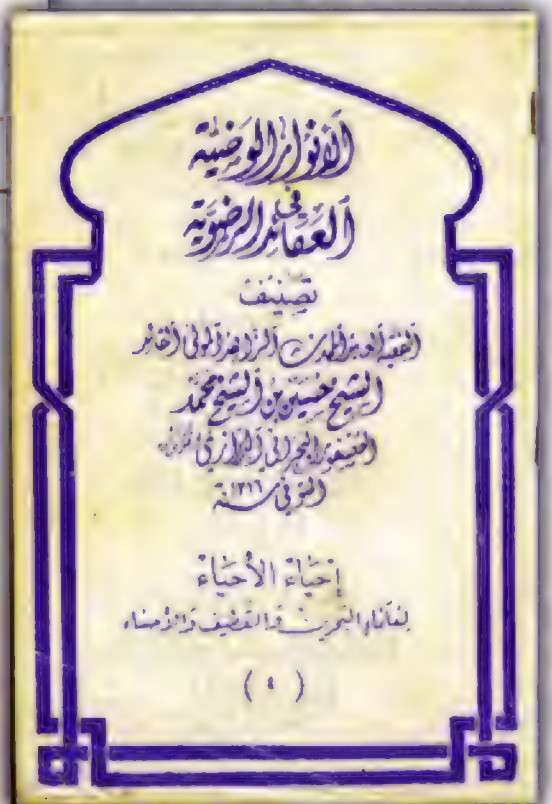 الأنوار الوضية
في
العقائد الرضوية
تصنيف
الفقيه المحدث
الشيخ حسين بن الشيخ محمد
البحراني الدرازي
المتوفى سنة ١٢١٦
إحياء الأحياء
لعلماء البحرين والقطيف والأحساء
( ٤ )